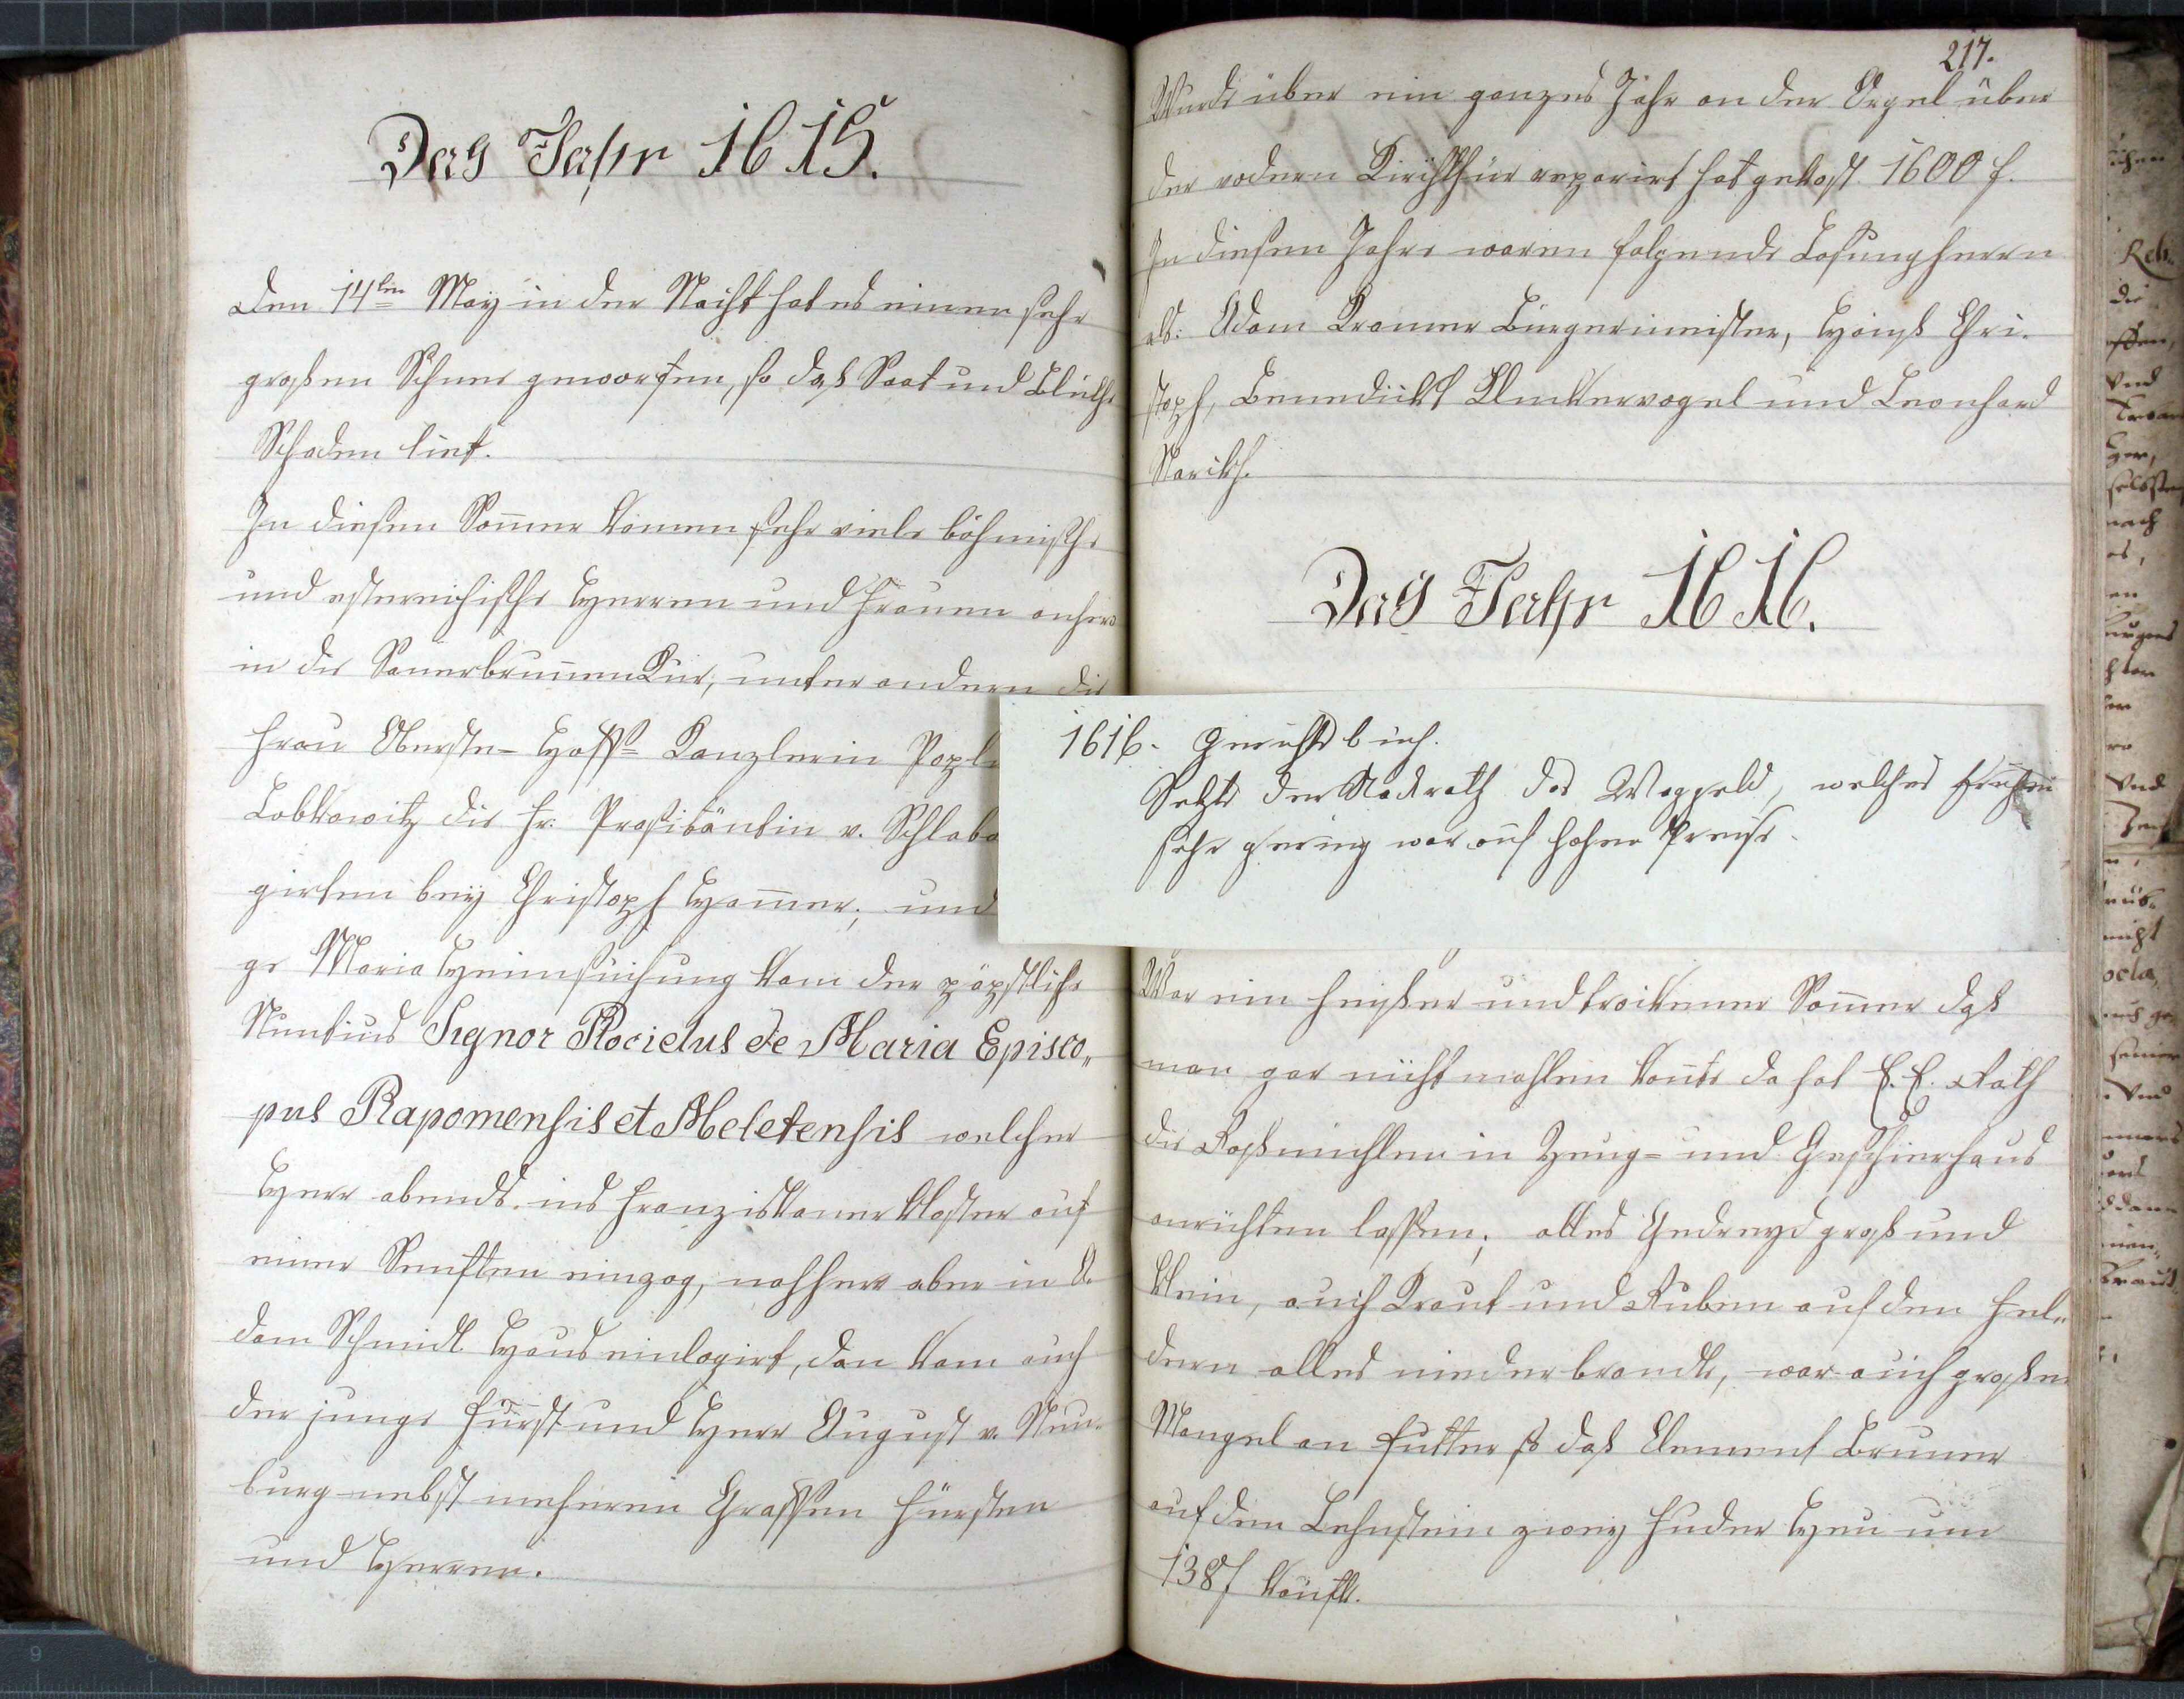 Das Jahr 1615.
Den 14ten May in der Nacht hat es einen sehr
großen Schnee geworfen, so daß Saat und Blüthe
Schaden liet.
In diesen Sommer kamen sehr viele böhmische
und östereichische Herren und Frauen anhero
in die SauerbrunnenKur, unter andern die
Frau Oberste- Hoffs- Kanzlerin Popl
Lobkowitz die Fr. Prasitäntin v. Schlaba
girten bey Christoph Hammer; und
ge Maria Heimsuchung kam der päpstliche
Nuntius Signor Plocidus de Maria Episco„
pus Rapomensis et Meletensis welcher
Herr abends ins Franziskanerkloster auf
einer Senften einzog, nachhero aber in A.
dam Schmidt Haus einlogirt, dan kam auch
der junge Fürst und Herr August v. Neu-
burg nebst mehreren Graffen Fürsten
und Herren.
217.
Wurde über ein ganzes Jahr an der Orgel über
der vodern Kirchthür reparirt hat gekost 1600 f.
In diesem Jahre waren folgende Losungherrn
als: Adam Kramer Bürgermeister, Hans Chri-
stoph, Benedickt und Leonhard
Das Jahr 1616.
1616. Gerichtsbuch.
Setzte der Stadtrath das Waggeld, welches früher
sehr gering war auf hohere Preise.
War ein heißer und trockener Sommer daß
man gar nicht mahlen konte da hat E. E. Rath
die Roßmühlen in Zeug- und Geschirrhaus
anrichten lassen; alles Gedreyd groß und
klein, auch Kraut und Ruben auf den Fel„
dern alles niederbrandte, war auch großer
Mangel an Futter so daß Clement Bruner
auf dem Lehnstein zwey Fuder Heu um
138 f kaufte.